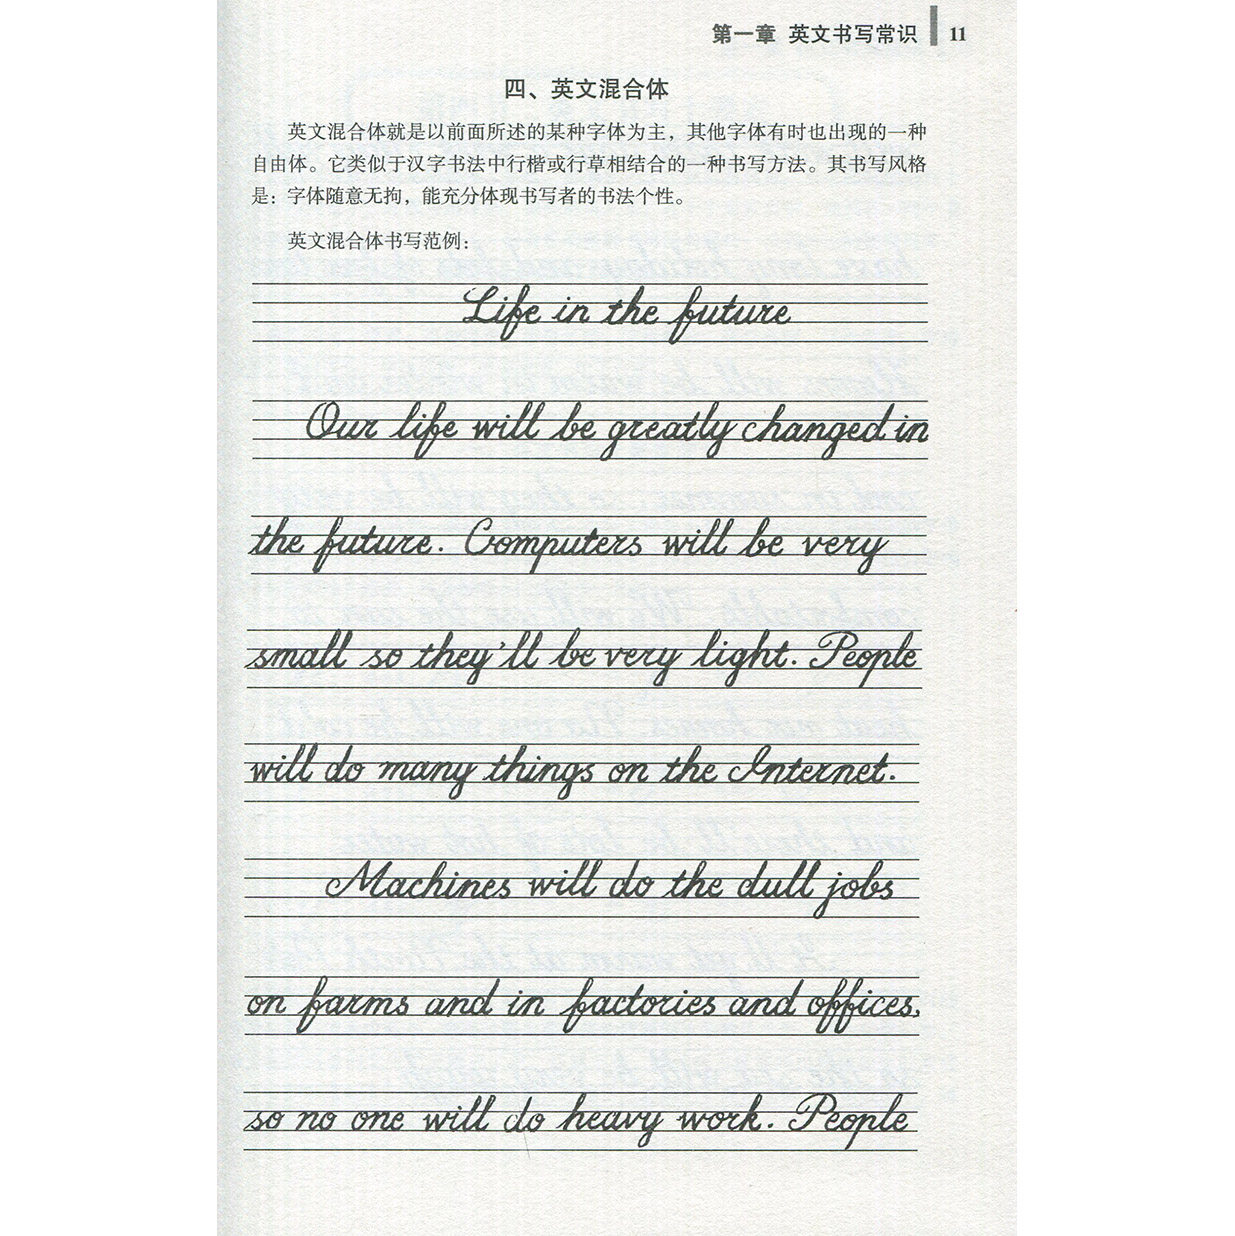 第一章 英文书写常识 11
四、英文混合体
英文混合体就是以前面所述的某种字体为主，其他字体有时也出现的一种
自由体。它类似于汉字书法中行楷或行草相结合的一种书写方法。其书写风格
是：字体随意无拘，能充分体现书写者的书法个性。
英文混合体书写范例：
Life in the future
Our life will be greatly changed in
the future. Computers will be very
small so they'll be very light. People
will do many things on the Internet.
Machines will do the dull jobs
on farms and in factories and offices,
so no one will do heavy work. People